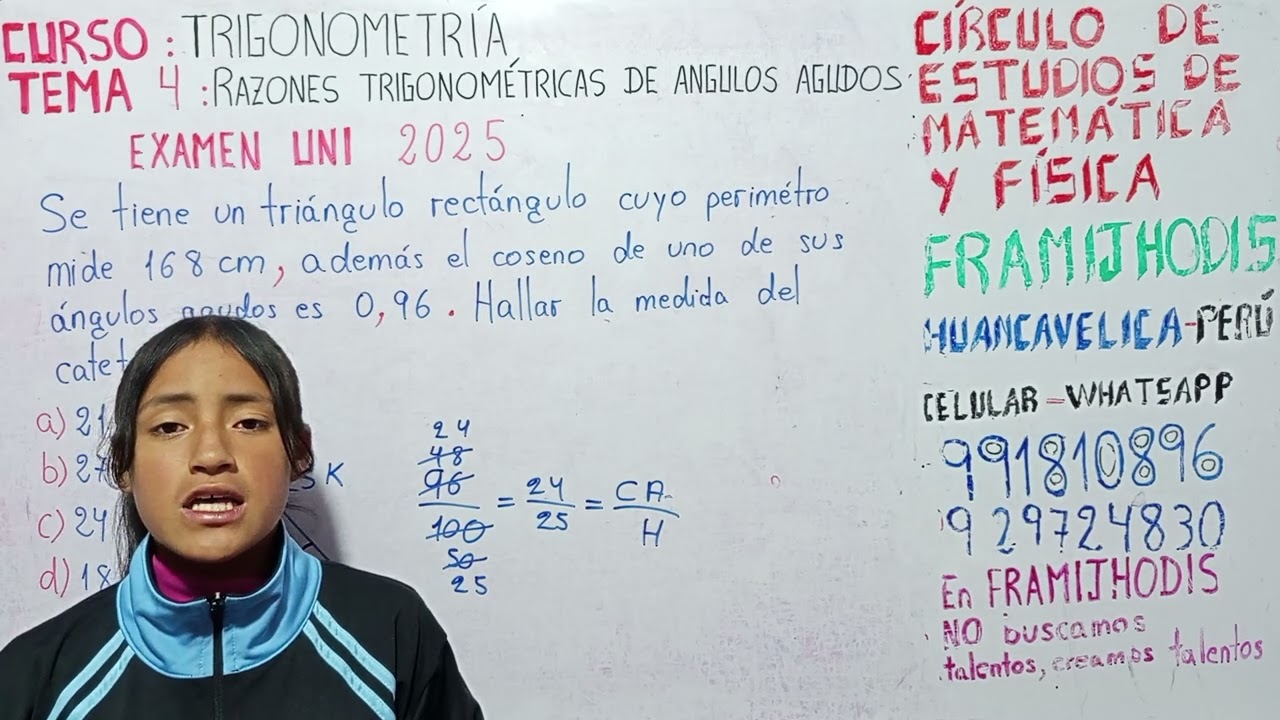 CURSO : TRIGONOMETRÍA
TEMA 4 : RAZONES TRIGONOMÉTRICAS DE ANGULOS AGUDOS
EXAMEN UNI 2025
Se tiene un triángulo rectángulo cuyo perimétro
mide 168 cm, además el coseno de uno de sus
ángulos agudos es 0,96. Hallar la medida del
a) 21
b) 27
c) 24
d) 18
K
24
48
96
100
50
25
= 24/25 = CA/H
CÍRCULO DE
ESTUDIOS DE
MATEMÁTICA
Y FÍSICA
FRAMIJHODIS
HUANCAVELICA-PERÚ
CELULAR-WHATSAPP
991810896
929724830
En FRAMIJHODIS
NO buscamos
talentos, creamos talentos